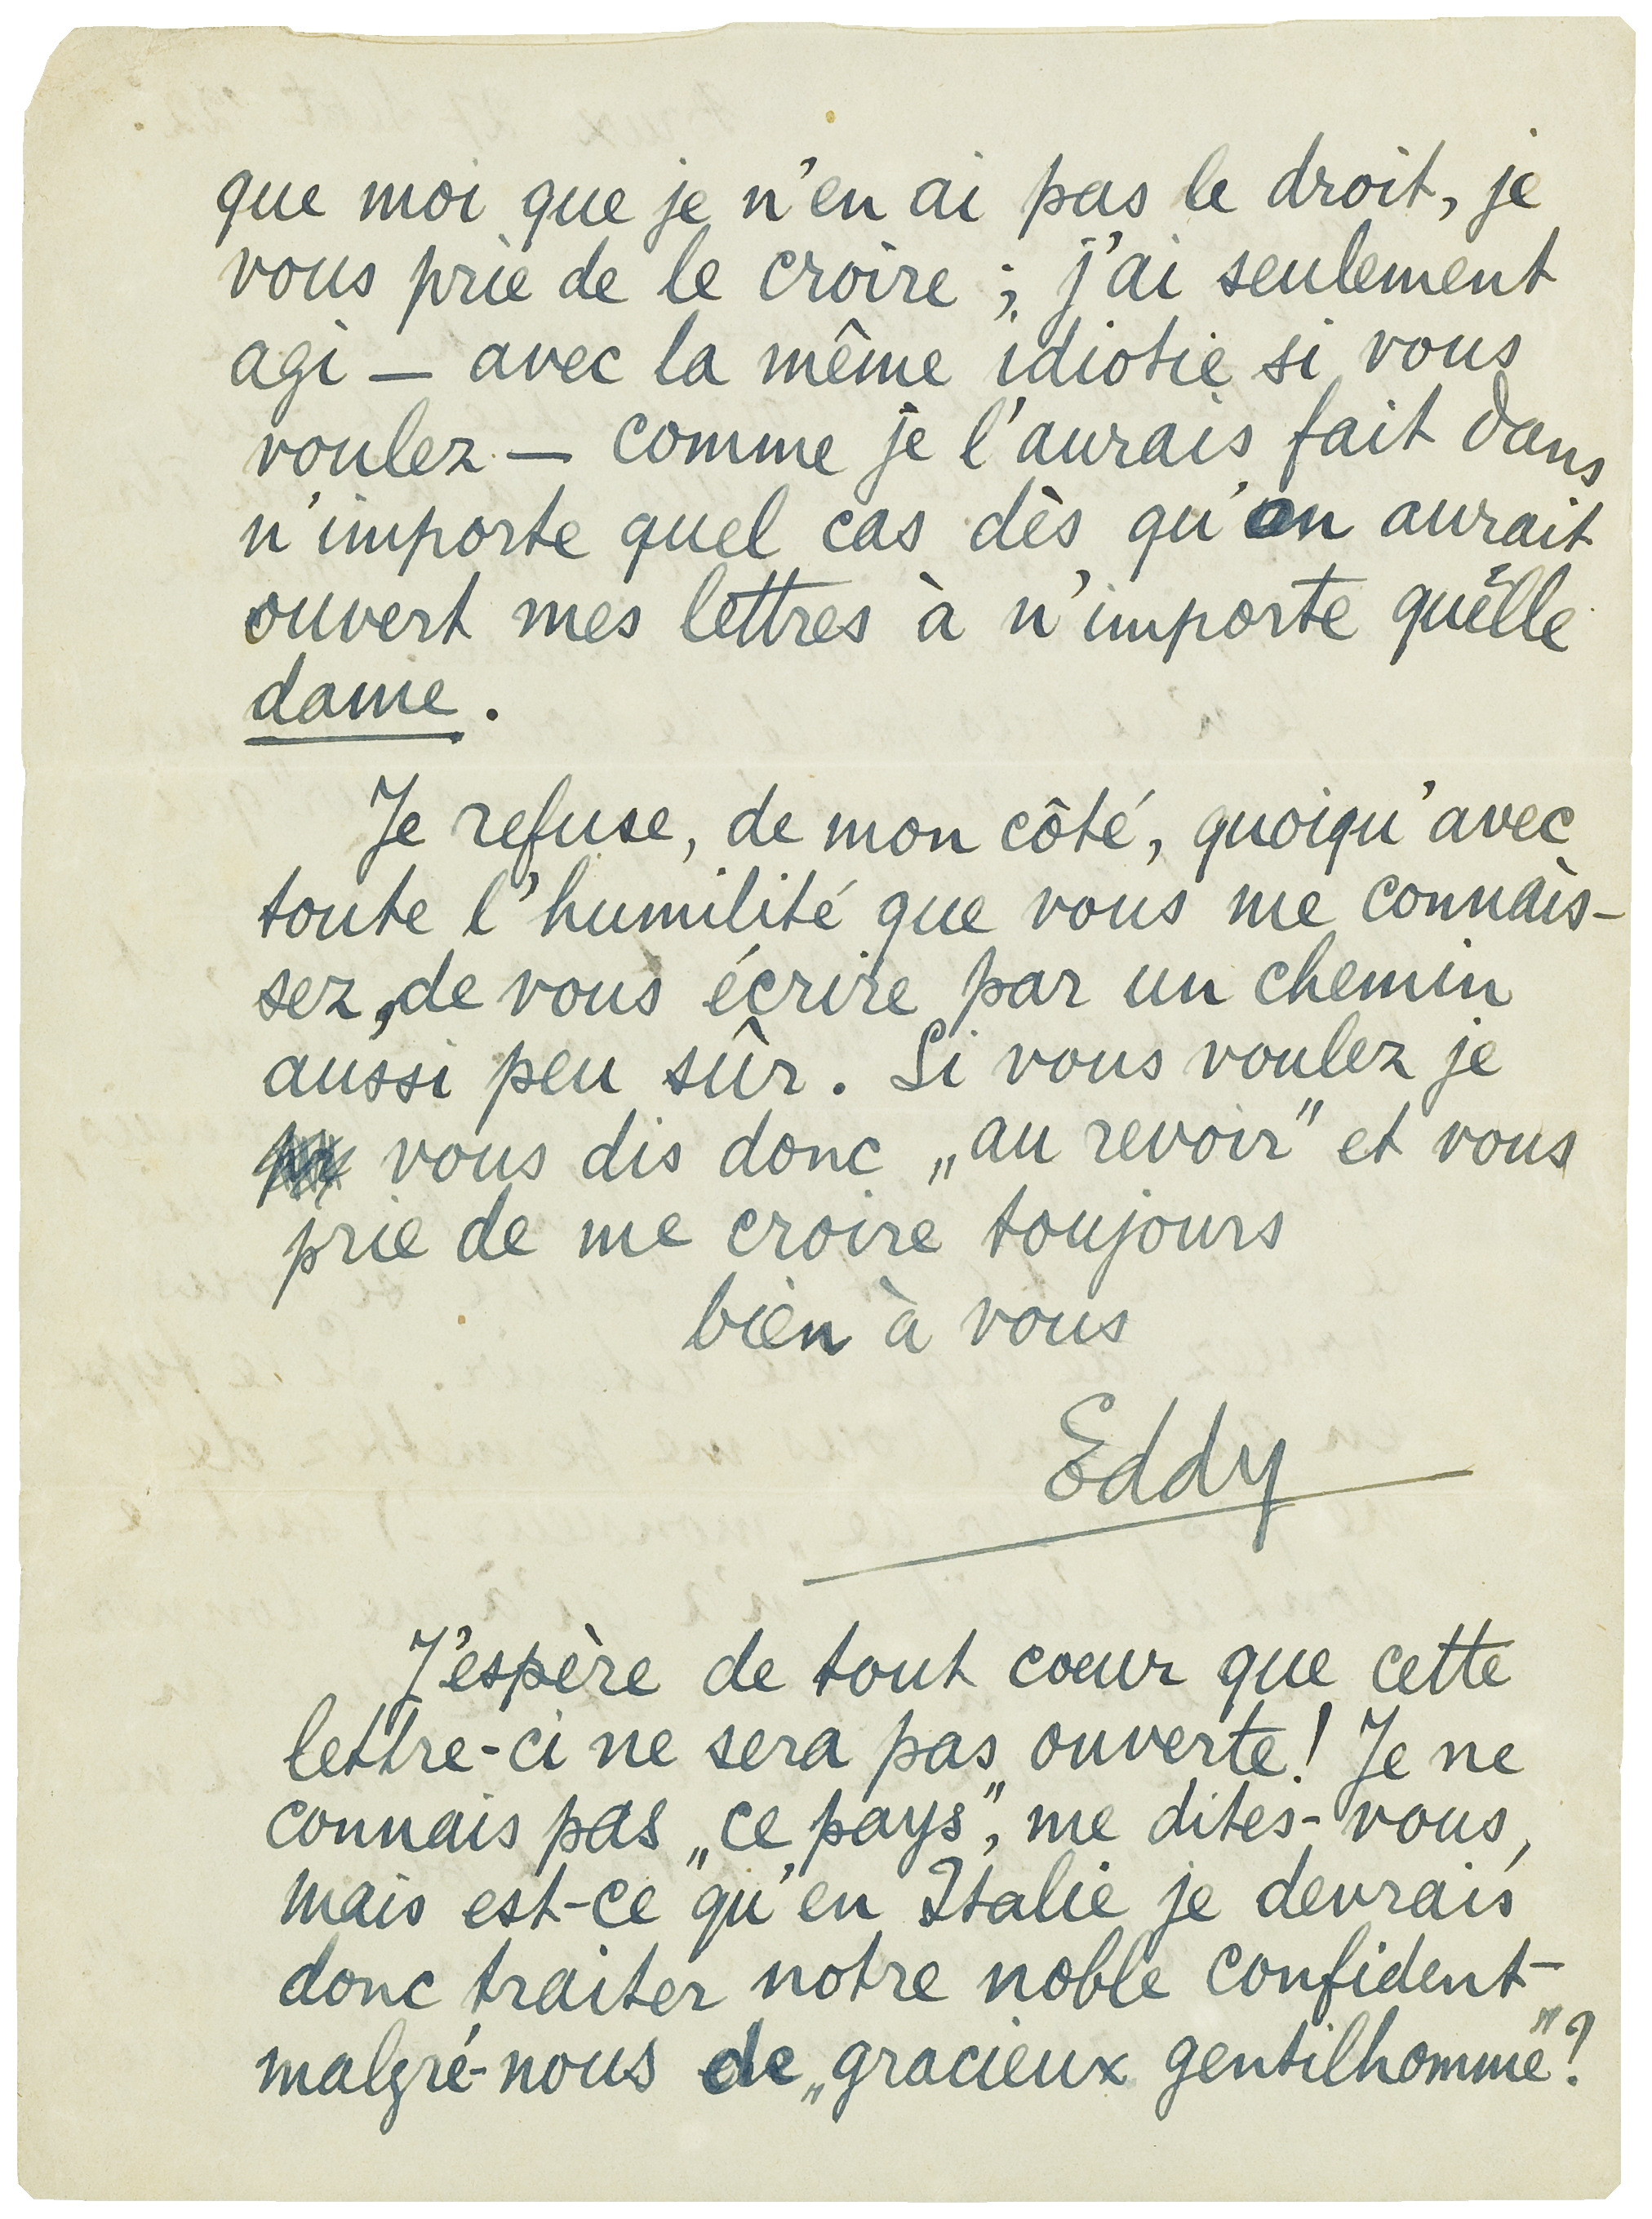 que moi que je n'en ai pas le droit, je
vous prie de le croire ; j'ai seulement
agi — avec la même idiotie si vous
voulez — comme je l'aurais fait dans
n'importe quel cas dès qu'on aurait
ouvert mes lettres à n'importe quelle
dame.
Je refuse, de mon côté, quoiqu'avec
toute l'humilité que vous me connais-
sez, de vous écrire par un chemin
aussi peu sûr. Si vous voulez je
vous dis donc „au revoir" et vous
prie de me croire toujours
bien à vous
Eddy
J'espère de tout coeur que cette
lettre-ci ne sera pas ouverte! Je ne
connais pas „ce pays", me dites-vous,
mais est-ce qu'en Italie je devrais
donc traiter notre noble confident-
malgré-nous de „gracieux gentilhomme"?